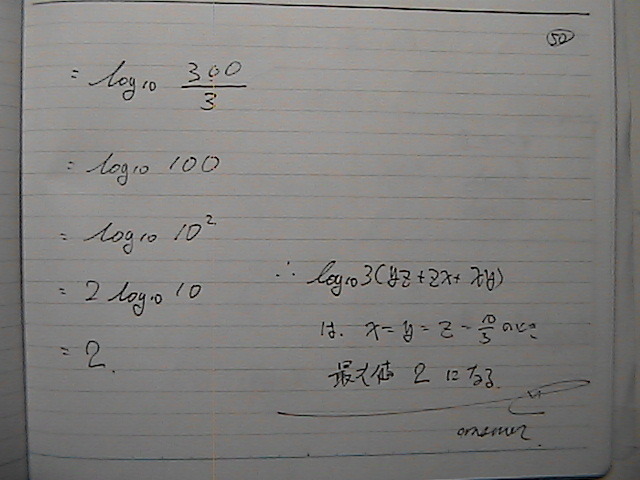 50
= log₁₀ 300/3
= log₁₀ 100
= log₁₀ 10²
= 2 log₁₀ 10
= 2.
∴ log₁₀ 3(yz+zx+xy)
は、x=y=z=10/3 のとき
最大値 2 になる.
answer.